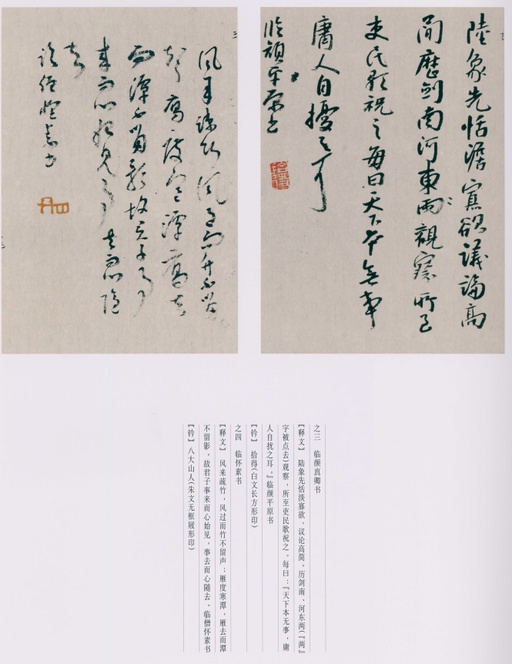 陸象先恬澹寡欲議論高
簡歷劍南河東兩觀察所至
吏民歌祝之每曰天下本無事
庸人自擾之耳
臨顏平原書
拾得
風来疎竹風過而竹不留
聲鴈度寒潭鴈去
而潭不留影故君子事
來而心始見事去而心隨
去
臨僧懷素書
之三　临颜真卿书
【释文】 陆象先恬淡寡欲，议论高简，历剑南、河东两(『两』
字被点去)观察，所至吏民歌祝之。每曰：『天下本无事，庸
人自扰之耳。』临颜平原书
【钤】 拾得(白文长方形印)
之四　临怀素书
【释文】 风来疏竹，风过而竹不留声；雁度寒潭，雁去而潭
不留影，故君子事来而心始见，事去而心随去。临僧怀素书
【钤】 八大山人(朱文无框屐形印)